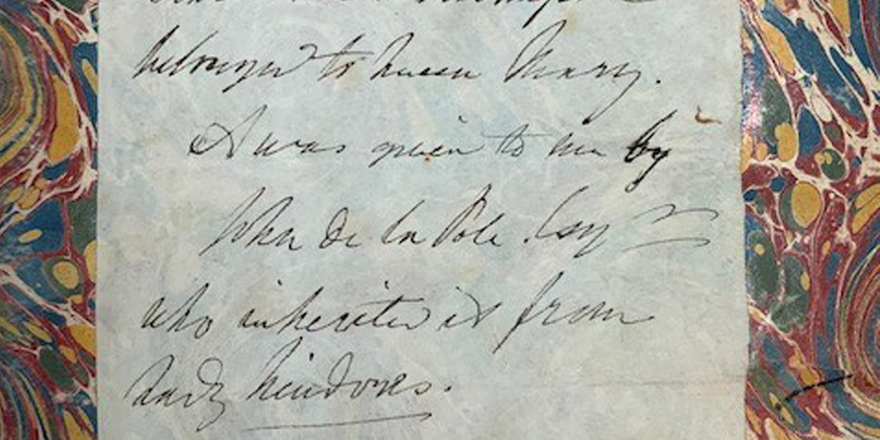 belonged to Queen Mary.
It was given to me by
John de la Pole. Esq
who inherited it from
Lady